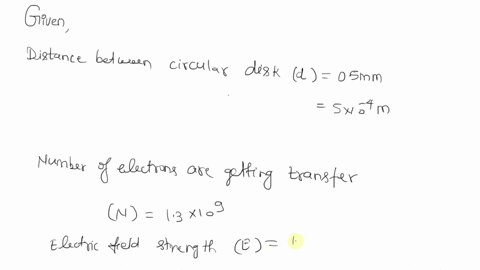 Given,
Distance between circular disk (d) = 05mm
= 5×10⁻⁴ m
Number of electrons are getting transfer
(N) = 1.3 ×10⁹
Electric field strength (E) = 1.